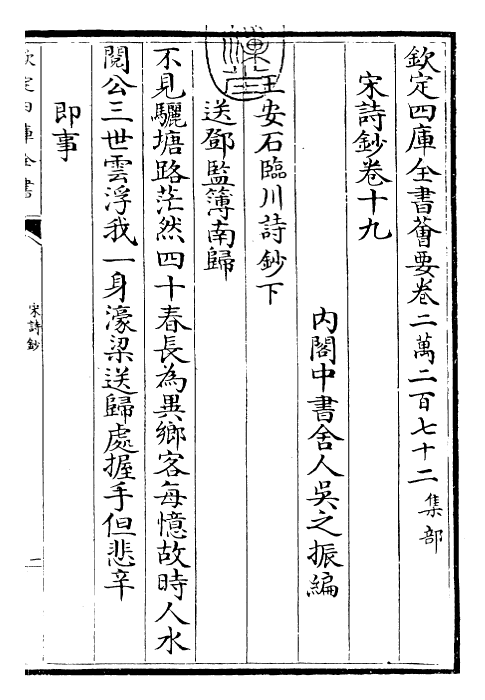 欽定四庫全書薈要卷二萬二百七十二 集部
宋詩鈔卷十九
內閣中書舍人吳之振編
王安石臨川詩鈔下
送鄧監簿南歸
不見驪塘路茫然四十春長為異鄉客每憶故時人水
閱公三世雲浮我一身濠梁送歸處握手但悲辛
即事
欽定四庫全書
宋詩鈔